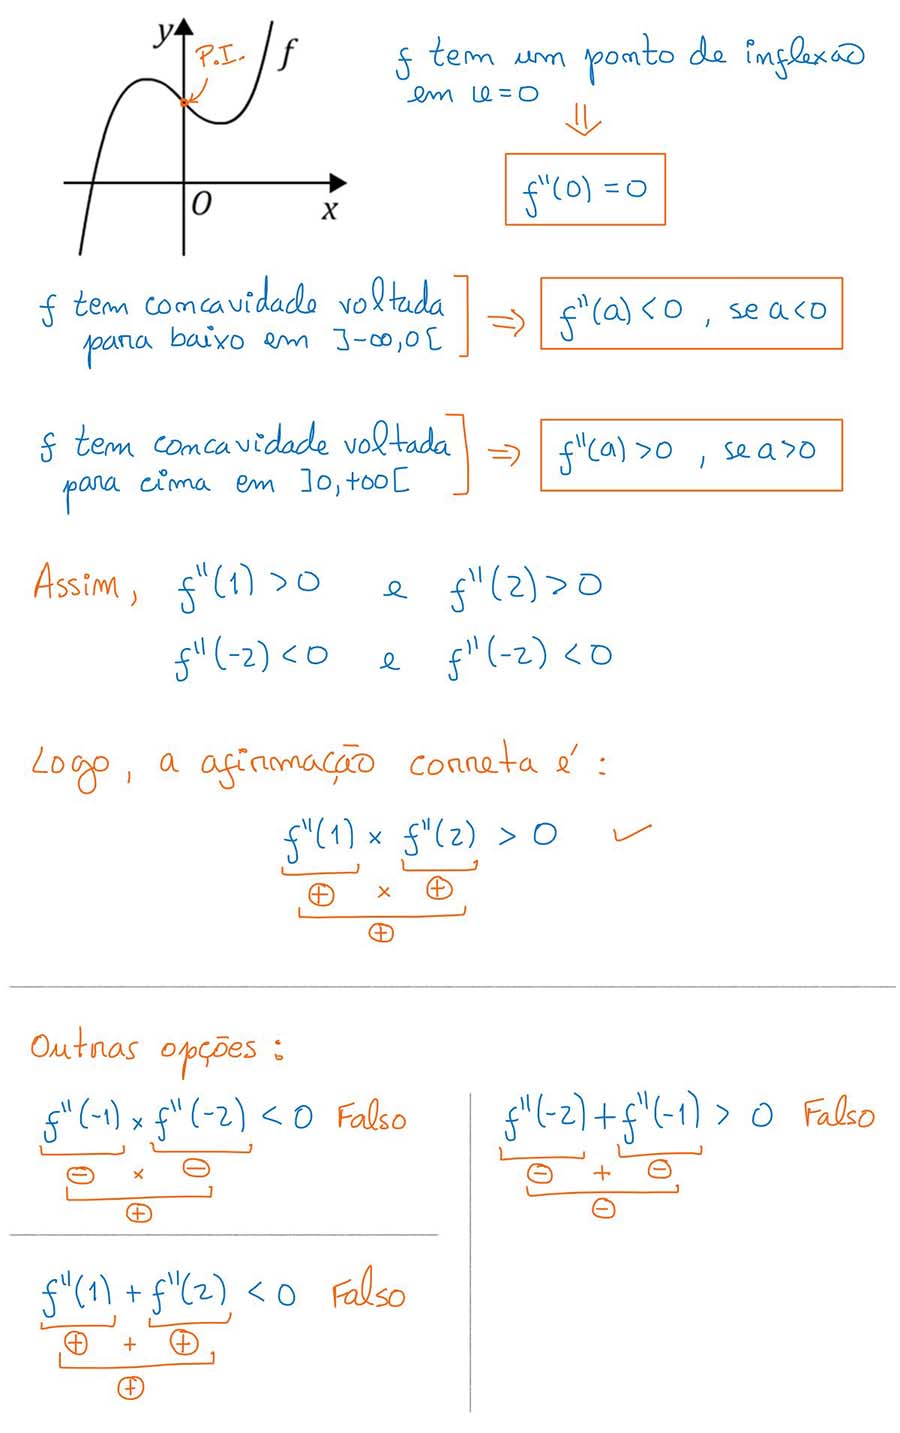 y
P.I.
f
O
x
f tem um ponto de inflexão
em x=0
⇓
f''(0) = 0
f tem concavidade voltada
para baixo em ]-∞,0[
⇒ f''(a)<0 , se a<0
f tem concavidade voltada
para cima em ]0,+∞[
⇒ f''(a)>0 , se a>0
Assim, f''(1) >0 e f''(2)>0
f''(-2)<0 e f''(-2)<0
Logo, a afirmação correta é :
f''(1) × f''(2) > 0 ✓
⊕ × ⊕
⊕
Outras opções :
f''(-1) × f''(-2) < 0 Falso
⊖ × ⊖
⊕
f''(1) + f''(2) < 0 Falso
⊕ + ⊕
⊕
f''(-2)+f''(-1) > 0 Falso
⊖ + ⊖
⊖